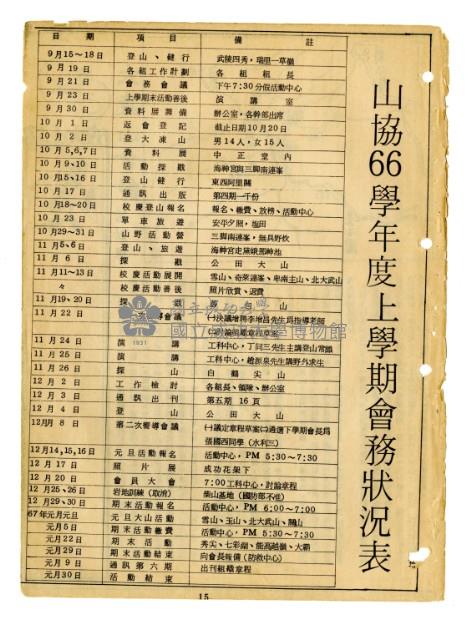 山協66學年度上學期會務狀況表
日期 項目 備註
9月15～18日 登山、健行 武陵四秀，瑞里一草嶺
9月19日 各組工作計劃 各組組長
9月21日 會務會議 下午7:30分假活動中心
9月23日 上學期末活動善後 演講室
9月30日 資料展籌備 辦公室，各幹部出席
10月1日 返會登記 截止日期10月20日
10月2日 登大凍山 男14人，女15人
10月5,6,7日 資料展 中正堂內
10月9、10日 活動探勘 海神宮與三腳南連峯
10月15、16日 登山健行 東西阿里關
10月17日 通訊出版 第四期一千份
10月18～20日 校慶登山報名 報名、繳費、放榜、活動中心
10月23日 單車旅遊 安平夕照，塩田
10月29～31日 山野活動營 三腳南連峯，無具野炊
11月5、6日 登山、旅遊 海神宮走黑
11月6日 探勘 公田大山
11月11～13日 校慶活動展開 雪山、奇萊連峯、卑南主山、北大武山
〃 校慶活動善後 照片欣賞、退費
11月19、20日 探勘
11月22日 導會議 ㈠決議增聘李增昌先生為指導老師
㈡討論組織章程草案
11月24日 演講 工科中心，丁同三先生主講登山常識
11月25日 演講 工科中心，趙振泉先生講野外求生
11月26日 探山 白鶴尖山
12月2日 工作檢討 各組長、領隊、辦公室
12月3日 通訊出刊 第五期 16頁
12月4日 登山 公田大山
12月8日 第二次嚮導會議 ㈠議定章程草案㈡通選下學期會長為
張國西同學（水利三）
12月14,15,16日 元旦活動報名 活動中心，PM 5:30～7:30
12月17日 照片展 成功花架下
12月20日 會員大會 7:00工科中心，討論章程
12月25、26日 岩地訓練（取消） 柴山基地（國防部不准）
12月29、30日 期末活動報名 活動中心，PM 6:00～7:00
67年元月元旦 元旦大山活動 雪山、玉山、北大武山、關山
元月5日 期末活動繳費 活動中心，PM 5:30～7:30
元月22日 期末活動 秀尖、七彩湖、能高越嶺、大霸
元月29日 期末活動結束 向會長報備（防救中心）
元月9日 通訊第六期 出刊組織章程
元月30日 活動結束
15
1931